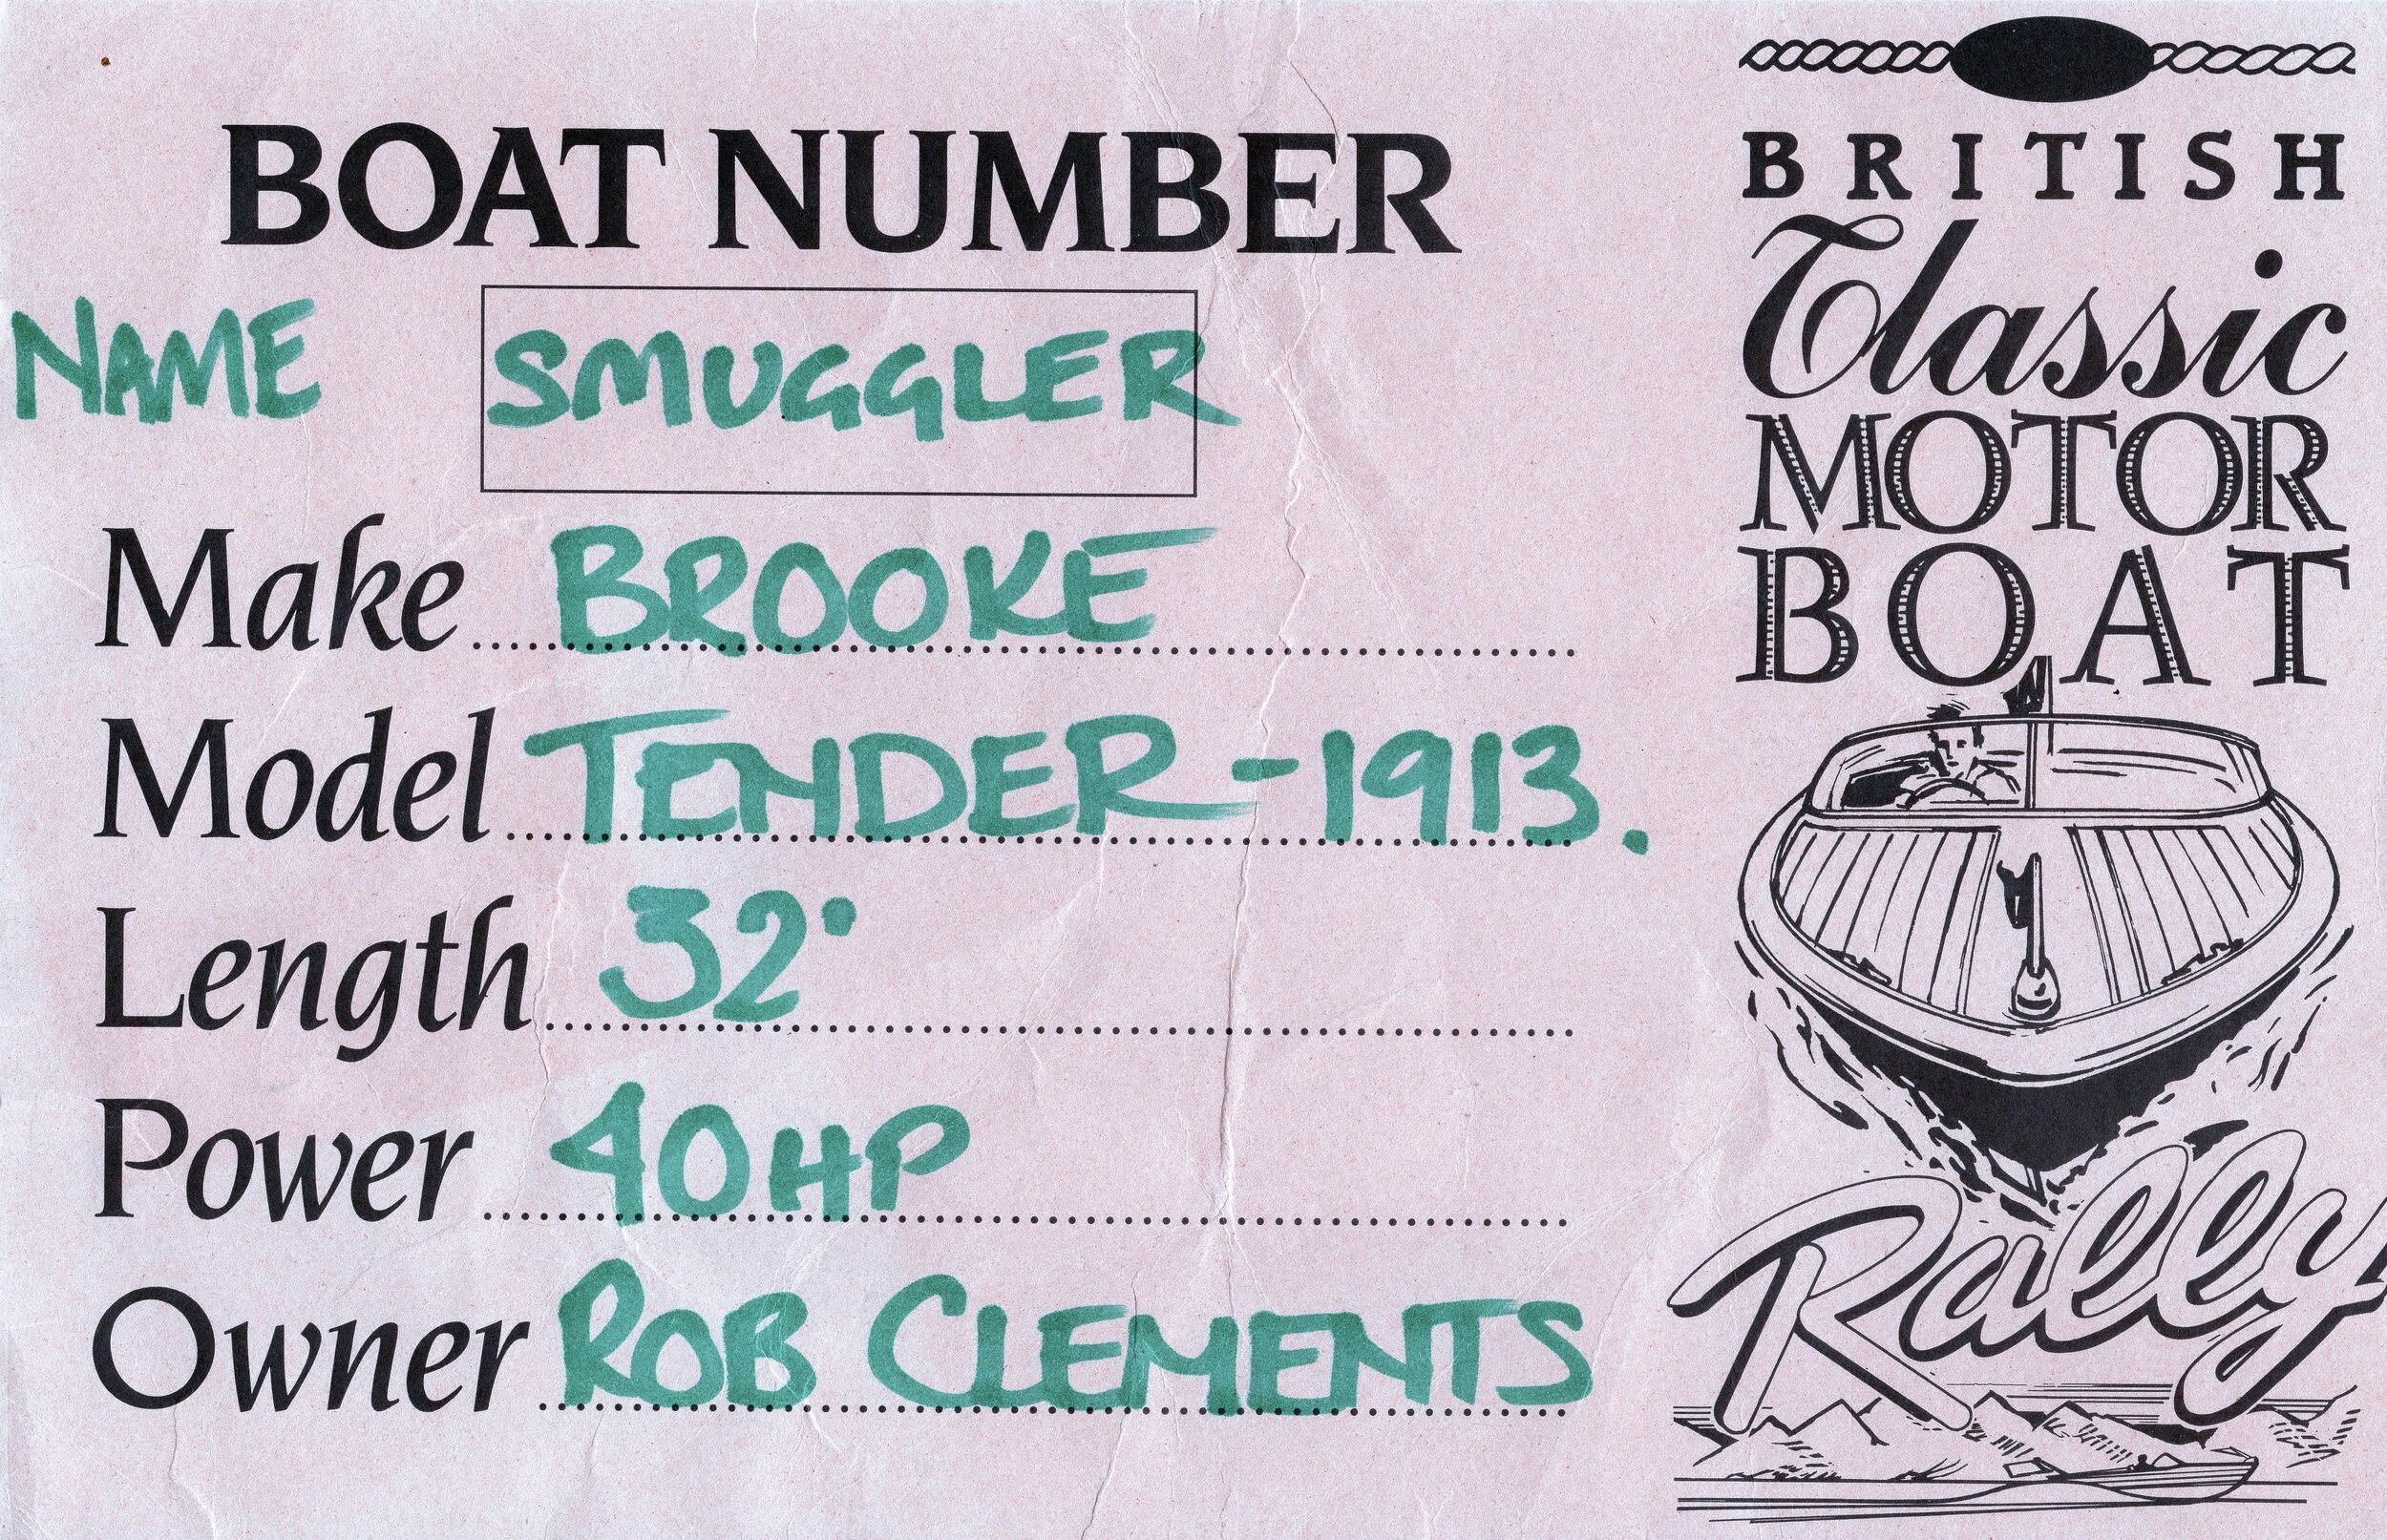 BOAT NUMBER
NAME SMUGGLER
Make BROOKE
Model TENDER - 1913.
Length 32'
Power 40HP
Owner ROB CLEMENTS
BRITISH
Classic
MOTOR
BOAT
Rally